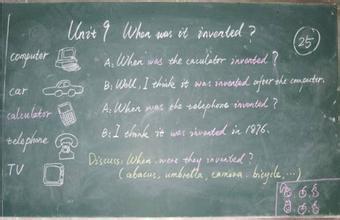 Unit 9 When was it invented?
25
computer
A: When was the caculator invented?
B: Well, I think it was invented after the computer.
car
calculator
A: When was the telephone invented?
telephone
B: I think it was invented in 1876.
TV
Discuss: When were they invented?
(abacus, umbrella, camera, bicycle, ...)